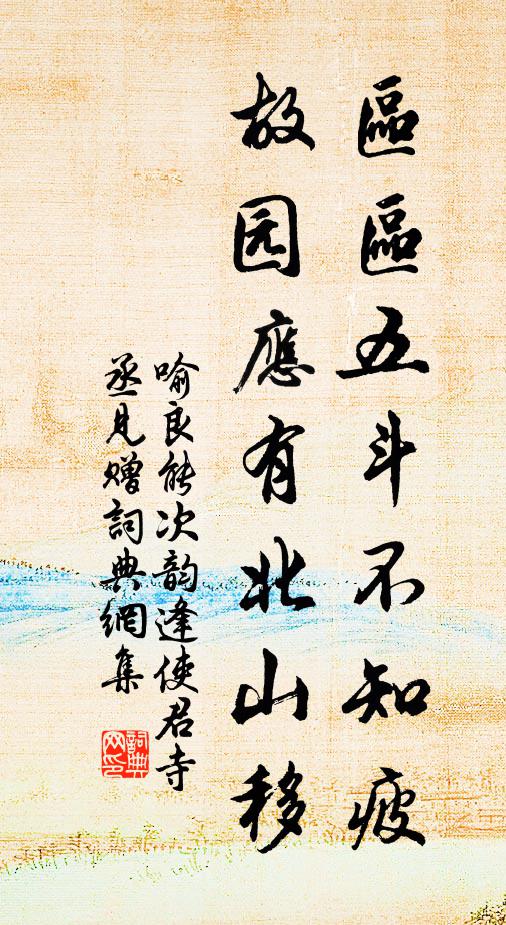 區區五斗不知疲
故园應有北山移
喻良能次韵逢使君寺
丞見贈詞典網集
詞典網印